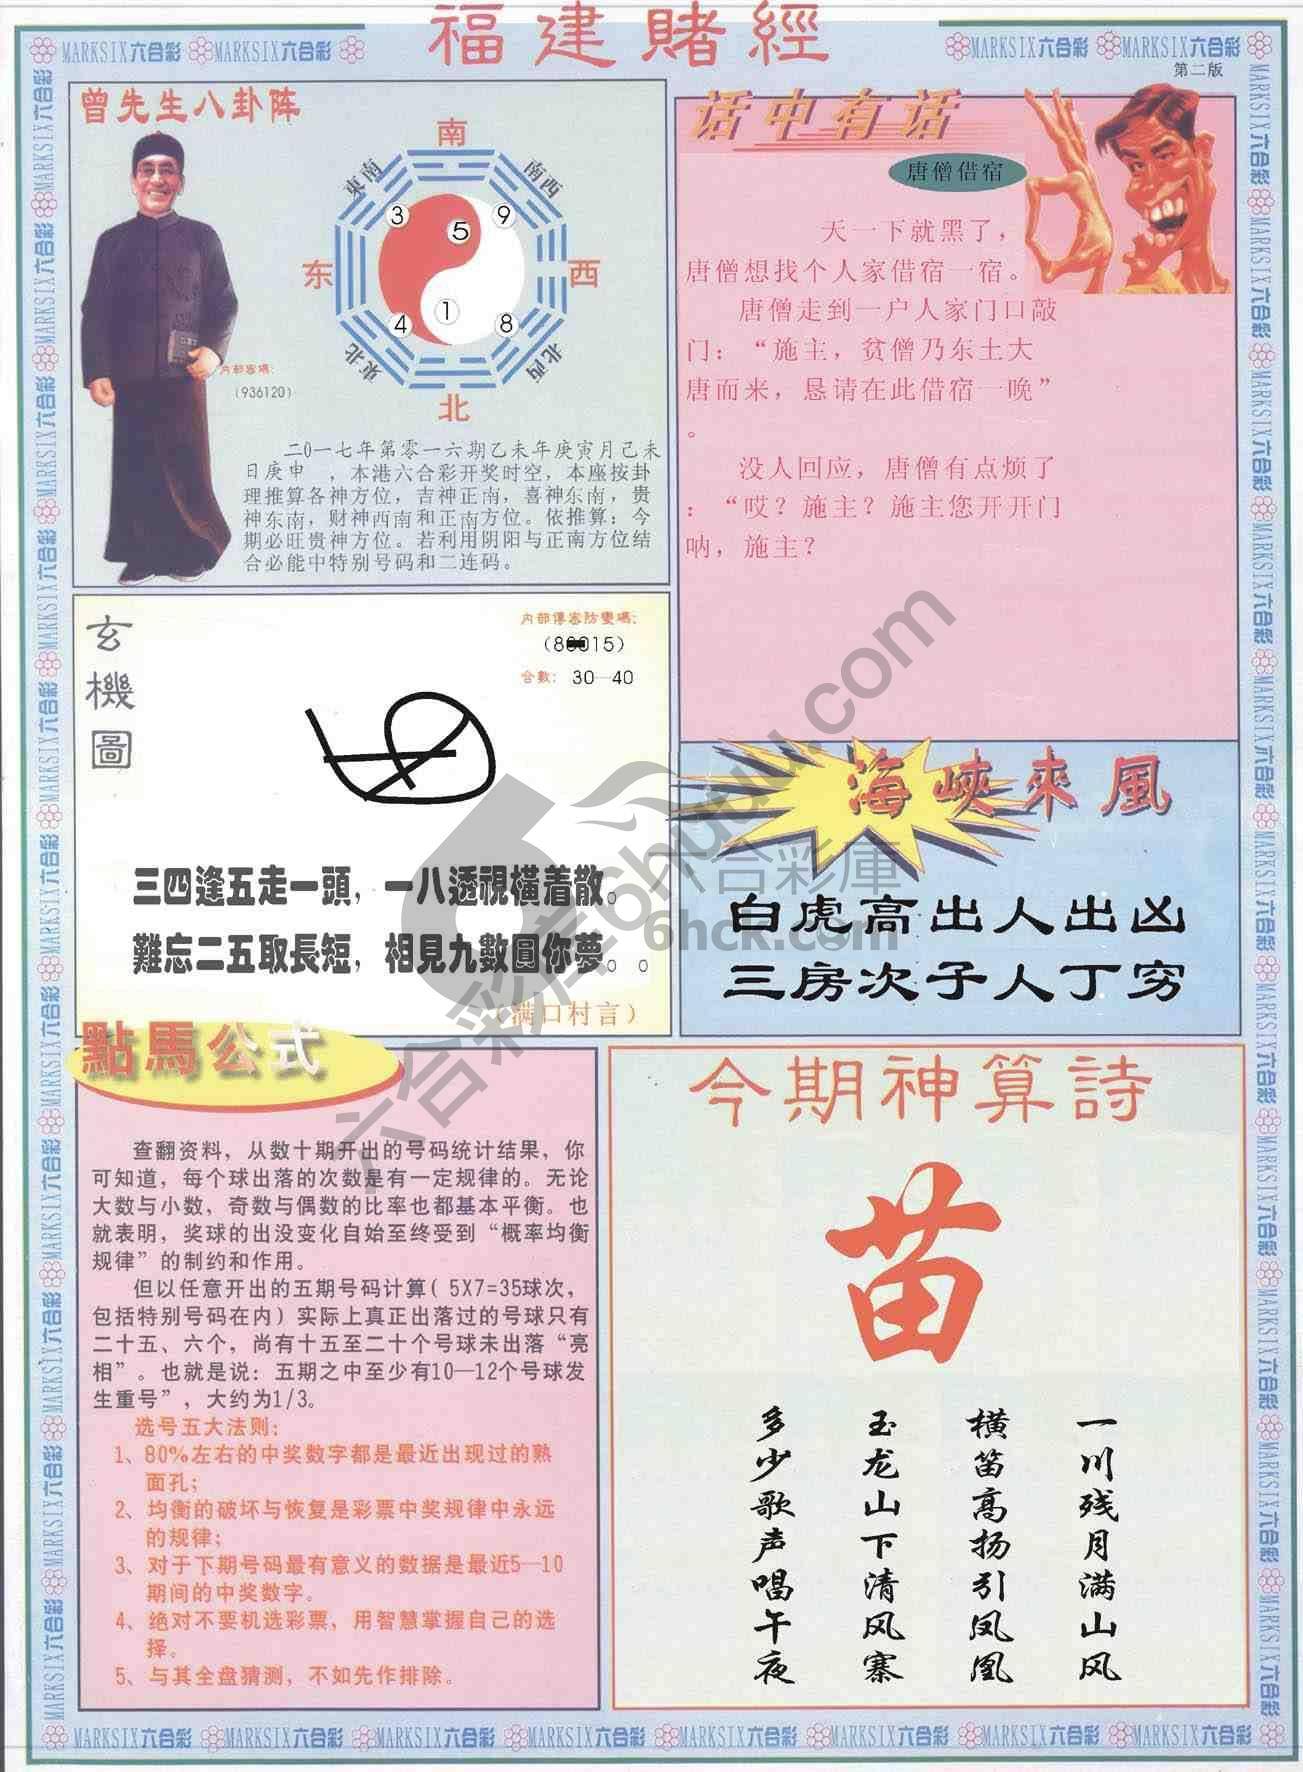 福建賭經
MARKSIX六合彩 MARKSIX六合彩 MARKSIX六合彩 MARKSIX六合彩
第二版
曾先生八卦阵
南
東南 南西
3 9
5
东 西
1
4 8
東北 北西
北
内部密碼:
(936120)
二0一七年第零一六期乙未年庚寅月己未
日庚申 ,本港六合彩开奖时空,本座按卦
理推算各神方位,吉神正南,喜神东南,贵
神东南,财神西南和正南方位。依推算:今
期必旺贵神方位。若利用阴阳与正南方位结
合必能中特别号码和二连码。
话中有话
唐僧借宿
天一下就黑了,
唐僧想找个人家借宿一宿。
唐僧走到一户人家门口敲
门:“施主,贫僧乃东土大
唐而来,恳请在此借宿一晚”
。
没人回应,唐僧有点烦了
:“哎?施主?施主您开开门
呐,施主?
玄機圖
内部傳密防變碼:
合數: 30—40
三四逢五走一頭,一八透視橫着散。
難忘二五取長短,相見九數圓你夢。。
(满口村言)
海峽來風
白虎高出人出凶
三房次子人丁穷
點馬公式
查翻资料,从数十期开出的号码统计结果,你
可知道,每个球出落的次数是有一定规律的。无论
大数与小数,奇数与偶数的比率也都基本平衡。也
就表明,奖球的出没变化自始至终受到“概率均衡
规律”的制约和作用。
但以任意开出的五期号码计算( 5X7=35球次,
包括特别号码在内)实际上真正出落过的号球只有
二十五、六个,尚有十五至二十个号球未出落“亮
相”。也就是说:五期之中至少有10—12个号球发
生重号”,大约为1/3。
选号五大法则:
1、80%左右的中奖数字都是最近出现过的熟
面孔;
2、均衡的破坏与恢复是彩票中奖规律中永远
的规律;
3、对于下期号码最有意义的数据是最近5—10
期间的中奖数字。
4、绝对不要机选彩票,用智慧掌握自己的选
择。
5、与其全盘猜测,不如先作排除。
今期神算詩
苗
一川残月满山风
横笛高扬引凤凰
玉龙山下清风寨
多少歌声唱午夜
六合彩库6hcku.com
六合彩庫
6hck.com
MARKSIX六合彩 MARKSIX六合彩 MARKSIX六合彩 MARKSIX六合彩 MARKSIX六合彩 MARKSIX六合彩 MARKSIX六合彩 MARKSIX六合彩